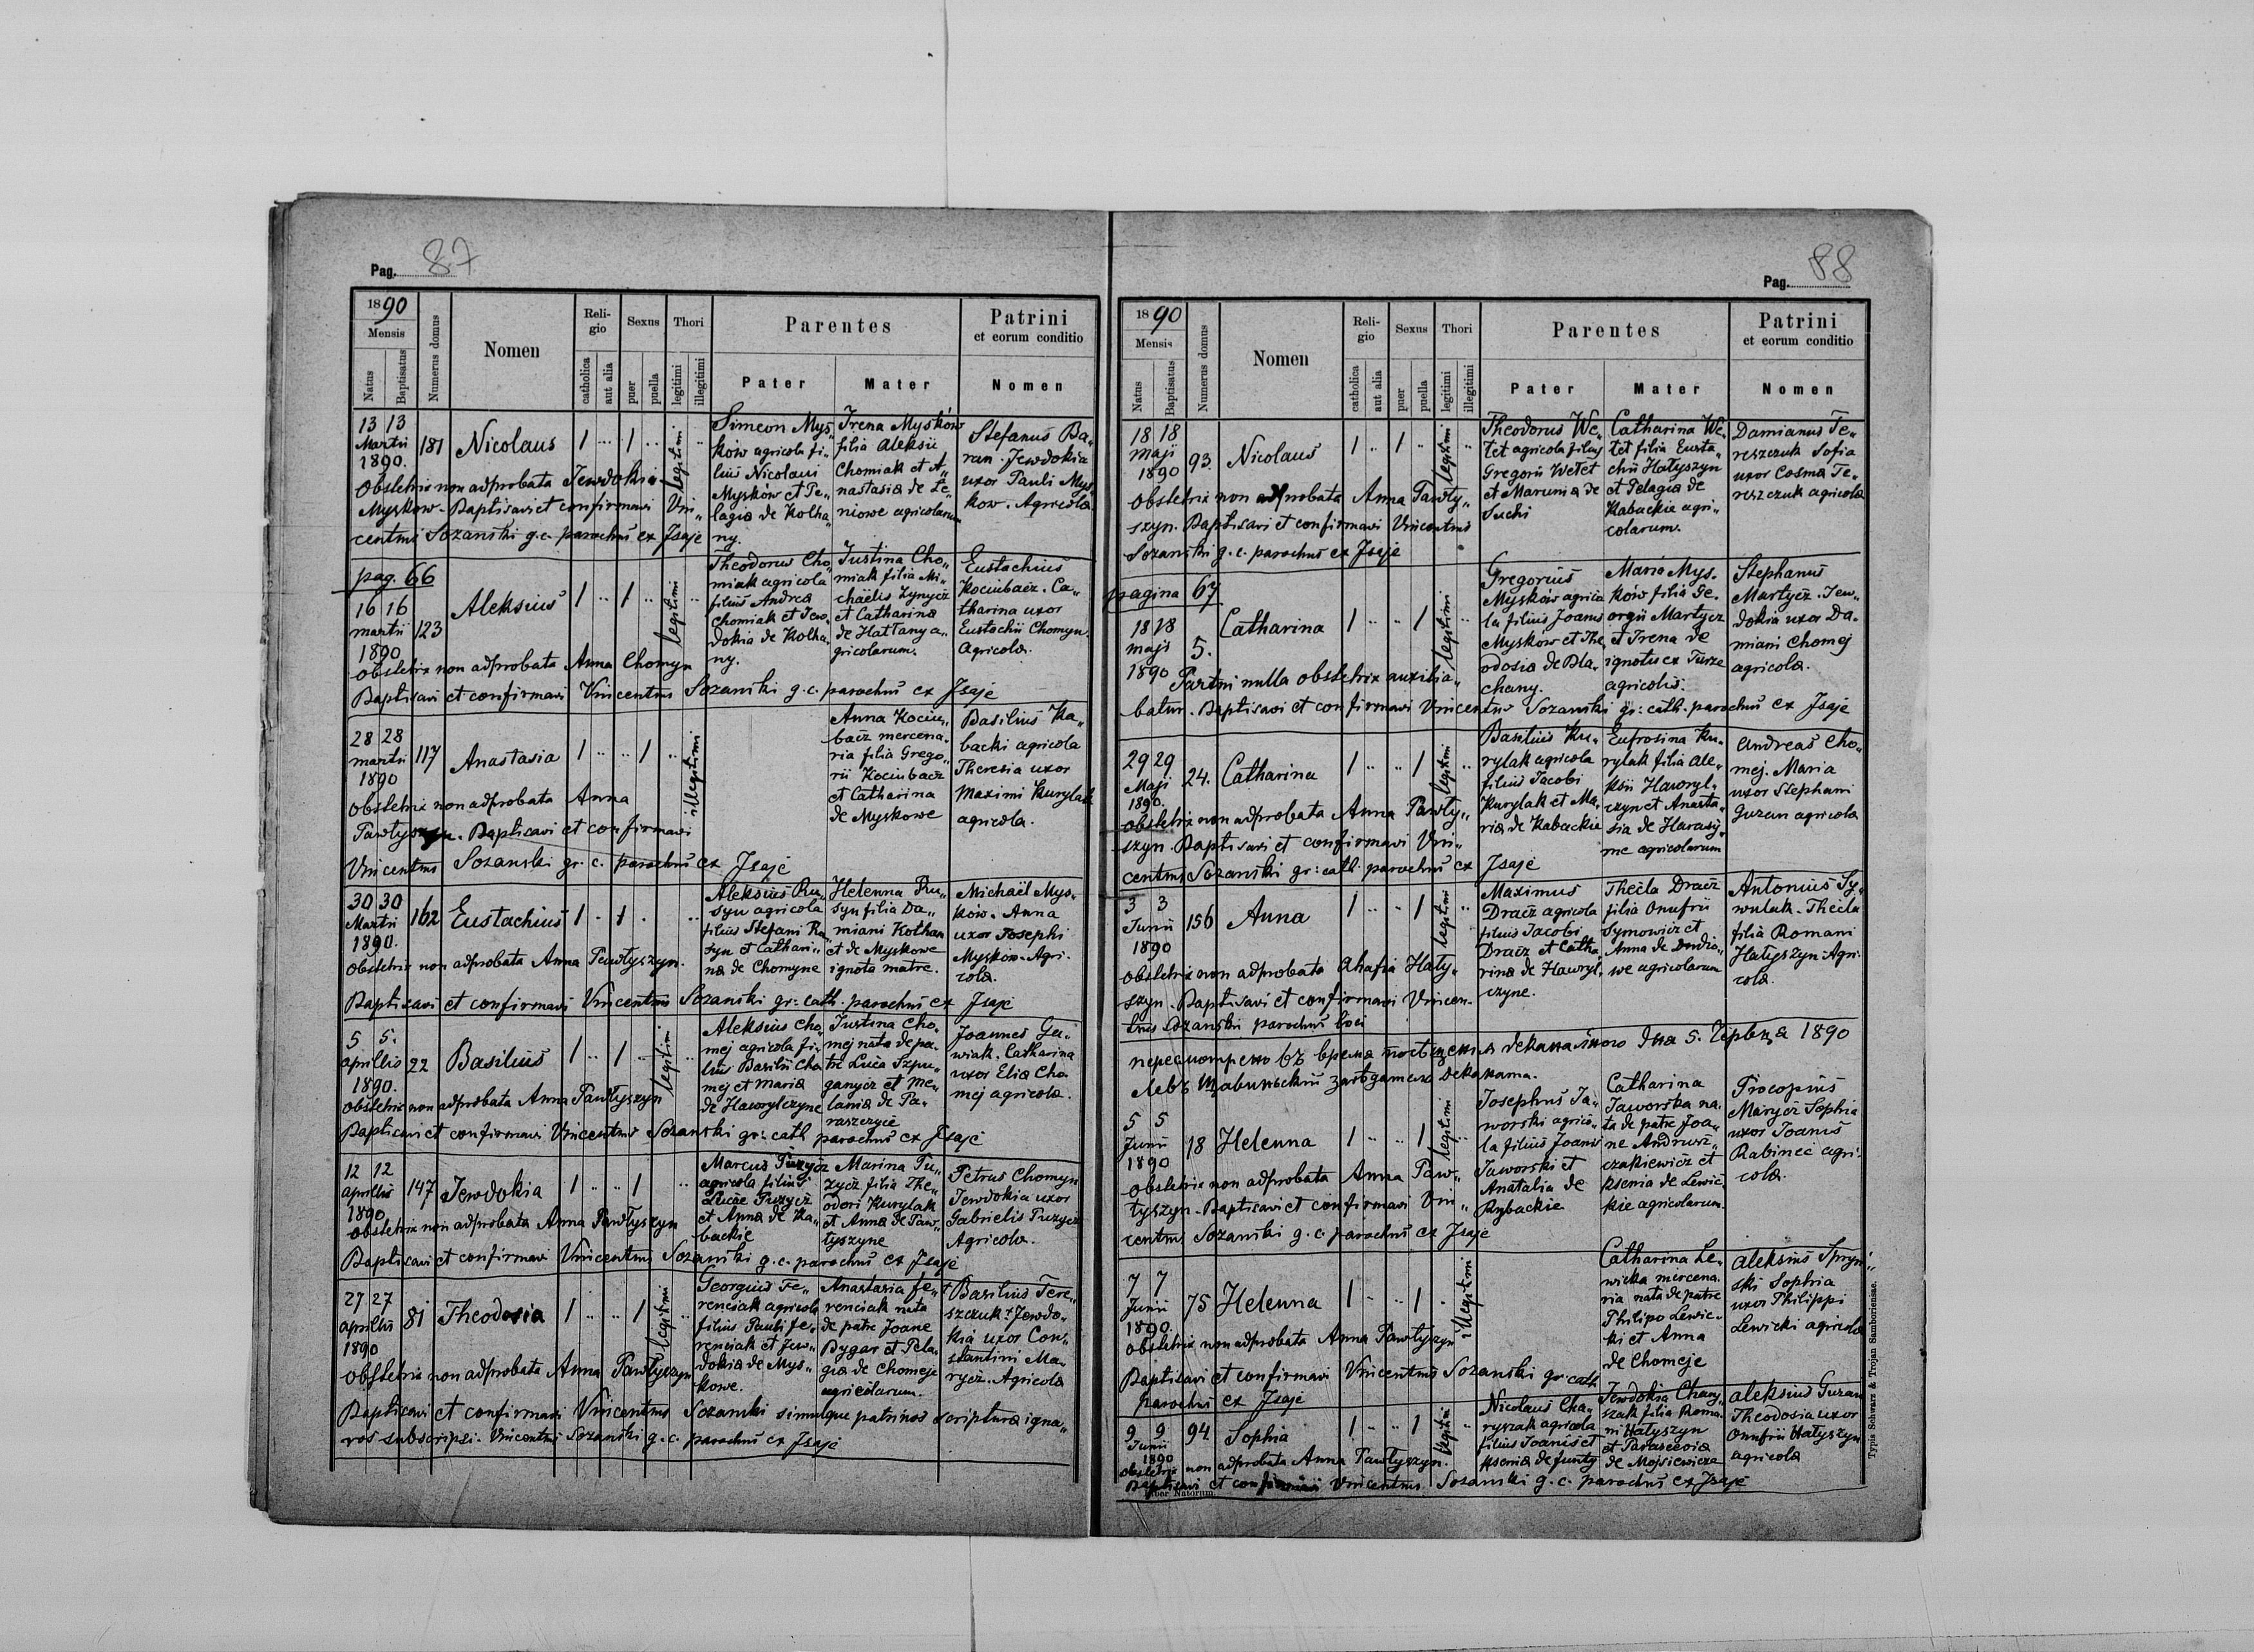 Pag. 87
1890
Mensis
Natus
Baptisatus
Numerus domus
Nomen
Religio
catholica
aut alia
Sexus
puer
puella
Thori
legitimi
illegitimi
Parentes
Pater
Mater
Patrini
et eorum conditio
Nomen
13 13
Martii
1890.
181
Nicolaus
1 .. 1 ..
legitimi
Simeon Mys„
ków agricola fi„
lius Nicolai
Mysków et Pe„
lagia de Kolha„
ny.
Irena Mysków
filia Aleksii
Chomiak et A„
nastasia de Le„
niowe agricolarum
Stefanus Ba„
ran. Jewdokia
uxor Pauli Mys„
kow. Agricola
Obstetrix non adprobata Jewdokia
Myskow. Baptisavi et confirmavi Vin„
centius Sozanski g.c. parochus ex Isaje
pag. 66
16 16
martii
1890
123
Aleksius
1 .. 1 ..
legitimi
Theodorus Cho„
miak agricola
filius Andrea
Chomiak et Jew„
dokia de Kolha„
ny.
Justina Cho„
miak filia Mi„
chaëlis Zynycz
et Catharina
de Hattany a„
gricolarum.
Eustachius
Kociubacz. Ca„
tharina uxor
Eustachii Chomyn.
Agricola.
obstetrix non adprobata Anna Chomyn
Baptisavi et confirmavi Vincentius Sozanski g.c. parochus ex Isaje
28 28
martii
1890
117
Anastasia
1 .. .. 1
illegitimi
Anna Kociu„
bacz mercena„
ria filia Grego„
rii Kociubacz
et Catharina
de Myskowe
Basilius Ka„
backi agricola
Theresia uxor
Maximi Kurylak
agricola.
Obstetrix non adprobata Anna
Pawłyszyn. Baptisavi et confirmavi
Vincentius Sozanski gr. c. parochus ex Isaje
30 30
Martii
1890.
162
Eustachius
1 .. 1 .
Aleksius Ru„
syn agricola
filius Stefani Ru„
syn et Cathari„
na de Chomyne
Helenna Ru„
syn filia Da„
miani Kothan
et de Myskowe
ignota matre.
Michaël Mys„
ków. Anna
uxor Josephi
Myskow. Agri„
cola.
Obstetrix non adprobata Anna Pawłyszyn.
Baptisavi et confirmavi Vincentius Sozanski gr: cath. parochus ex Isaje
5 5.
aprillis
1890.
22
Basilius
1 .. 1 ..
legitimi
Aleksius Cho„
mej agricola fi„
lius Basilii Cho„
mej et Maria
de Hawrylczyne
Justina Cho„
mej nata de pa„
tre Luca Szpu„
ganycz et Me„
lania de Pa„
raszczyce
Joannes Ga„
wiak. Catharina
uxor Elia Cho„
mej agricola.
Obstetrix non adprobata Anna Pawłyszyn
Baptisavi et confirmavi Vincentius Sozanski gr: cath parochus ex Isaje
12 12
aprillis
1890
147
Jewdokia
1 .. .. 1
Marcus Puzycz
agricola filius
Lucae Puzycz
et Anna de Ka„
backie
Marina Pu„
zycz filia The„
odori Kurylak
et Anna de Paw„
łyszyne
Petrus Chomyn
Jewdokia uxor
Gabrielis Puzycz
Agricola.
Obstetrix non adprobata Anna Pawłyszyn
Baptisavi et confirmavi Vincentius Sozanski g.c. parochus ex Isaje
27 27
aprillis
1890
81
Theodosia
1 .. .. 1
legitimi
Georgius Fe„
renciak agricola
filius Pauli Fe„
renciak et Jew„
dokia de Mys„
kowe.
Anastasia Fe„
renciak nata
de patre Joane
Bygar et Pela„
gia de Chomeje
agricolarum.
+ Basilius Tere„
szczuk + Jewdo„
kia uxor Con„
stantini Ma„
rycz. Agricola
Obstetrix non adprobata Anna Pawłyszyn
Baptisavi et confirmavi Vincentius Sozanski simulque patrinos scriptura igna„
ros subscripsi. Vincentius Sozanski g.c. parochus ex Isaje
Pag. 88
1890
Mensis
Natus
Baptisatus
Numerus domus
Nomen
Religio
catholica
aut alia
Sexus
puer
puella
Thori
legitimi
illegitimi
Parentes
Pater
Mater
Patrini
et eorum conditio
Nomen
18 18
maji
1890
93.
Nicolaus
1 .. 1 ..
legitimi
Theodorus We„
tet agricola filius
Gregorii Wetet
et Marunia de
Suchi
Catharina We„
tet filia Eusta„
chii Hałyszyn
et Pelagia de
Kabackie agri„
colarum.
Damianus Te„
reszczuk Sofia
uxor Cosma Te„
reszczuk agricola
Obstetrix non adprobata Anna Pawły„
szyn. Baptisavi et confirmavi Vincentius
Sozanski g.c. parochus ex Isaje
pagina 67
18 18
maji
1890
5.
Catharina
1 .. .. 1
legitimi
Gregorius
Mysków agrico
la filius Joanis
Myskow et The„
odosia de Bla„
chany.
Maria Mys„
ków filia Ge„
orgii Martycz
et Irena de
ignotu ex Turze
agricolis.
Stephanus
Martycz. Jew„
dokia uxor Da„
miani Chomej
agricola.
Partui nulla obstetrix auxilia„
batur. Baptisavi et confirmavi Vincentius Sozanski gr: cath. parochus ex Isaje
29 29
Maji
1890.
24.
Catharina
1 .. .. 1
legitimi
Basilius Ku„
rylak agricola
filius Jacobi
Kurylak et Ma„
ria de Kabackie
Eufrosina Ku„
rylak filia Ale„
ksii Hawryl„
czyn et Anasta„
sia de Harasy„
me agricolarum
Andreas Cho„
mej. Maria
uxor Stephani
Guzan agricola
Obstetrix non adprobata Anna Pawły„
szyn. Baptisavi et confirmavi Vin„
centius Sozanski gr: cath. parochus ex Isaje
3 3
Junii
1890
156
Anna
1 .. .. 1
legitimi
Maximus
Dracz agricola
filius Jacobi
Dracz et Catha„
rina de Hawryl„
czyne.
Thecla Dracz
filia Onufrii
Symowicz et
Anna de
agricolarum
Antonius Sy„
wulak. Thecla
filia Romani
Hałyszyn Agri„
cola.
Obstetrix non adprobata Ahafia Hały„
szyn. Baptisavi et confirmavi Vincen„
tius Sozanski parochus loci
5. 1890
5 5
Junii
1890
18
Helenna
1 .. .. 1
legitimi
Josephus Ja„
worski agrico„
la filius Joanis
Jaworski et
Anatalia de
Rybackie
Catharina
Jaworska na„
ta de patre Joa„
ne Andrusz„
czakiewicz et
Ksenia de Lewic„
kie agricolarum.
Procopius
Marycz Sophia
uxor Joanis
Rabinec agri„
cola.
Obstetrix non adprobata Anna Paw„
łyszyn. Baptisavi et confirmavi Vin„
centius Sozanski g.c. parochus ex Isaje
7 7
Junii
1890.
75
Helenna
1 .. .. 1
illegitimi
Catharina Le„
wicka mercena„
ria nata de patre
Philipo Lewic„
ki et Anna
de Chomeje
Aleksius Spryn„
ski Sophia
uxor Philippi
Lewicki agricola
Obstetrix non adprobata Anna Pawłyszyn
Baptisavi et confirmavi Vincentius Sozanski gr: cath
parochus ex Isaje
9 9
Junii
1890
94
Sophia
1 .. .. 1
legitimi
Nicolaus Cha„
ryszak agricola
filius Joanis et
Ksenia de Funty
Jewdokia Chary„
szak filia Roma„
ni Hałyszyn
et Parascevia
de Mojsiewicze
Aleksius Guzan
Theodosia uxor
Onufrii Hałyszyn
agricola
Obstetrix non adprobata Anna Pawłyszyn.
Baptisavi et confirmavi Vincentius Sozanski g.c. parochus ex Isaje
Liber Natorum.
Typis Schwarz & Trojan Samboriensae.